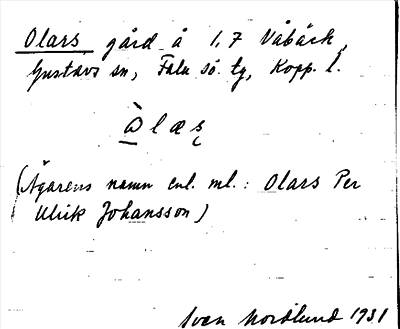 Olars gård å 1,7 Våbäck,
Gustavs sn, Falu sö. tg, Kopp. l.
òlæs̨
(Ägarens namn enl. ml.: Olars Per
Ulrik Johansson)
Sven Nordlund 1931